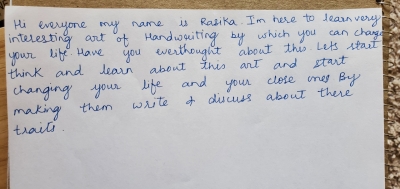 Hi everyone my name is Rasika. I'm here to learn very
interesting art of Handwriting by which you can change
your life. Have you everthought about this. Let's start
think and learn about this art and start
changing your life and your close ones By
making them write & discuss about there
traits.